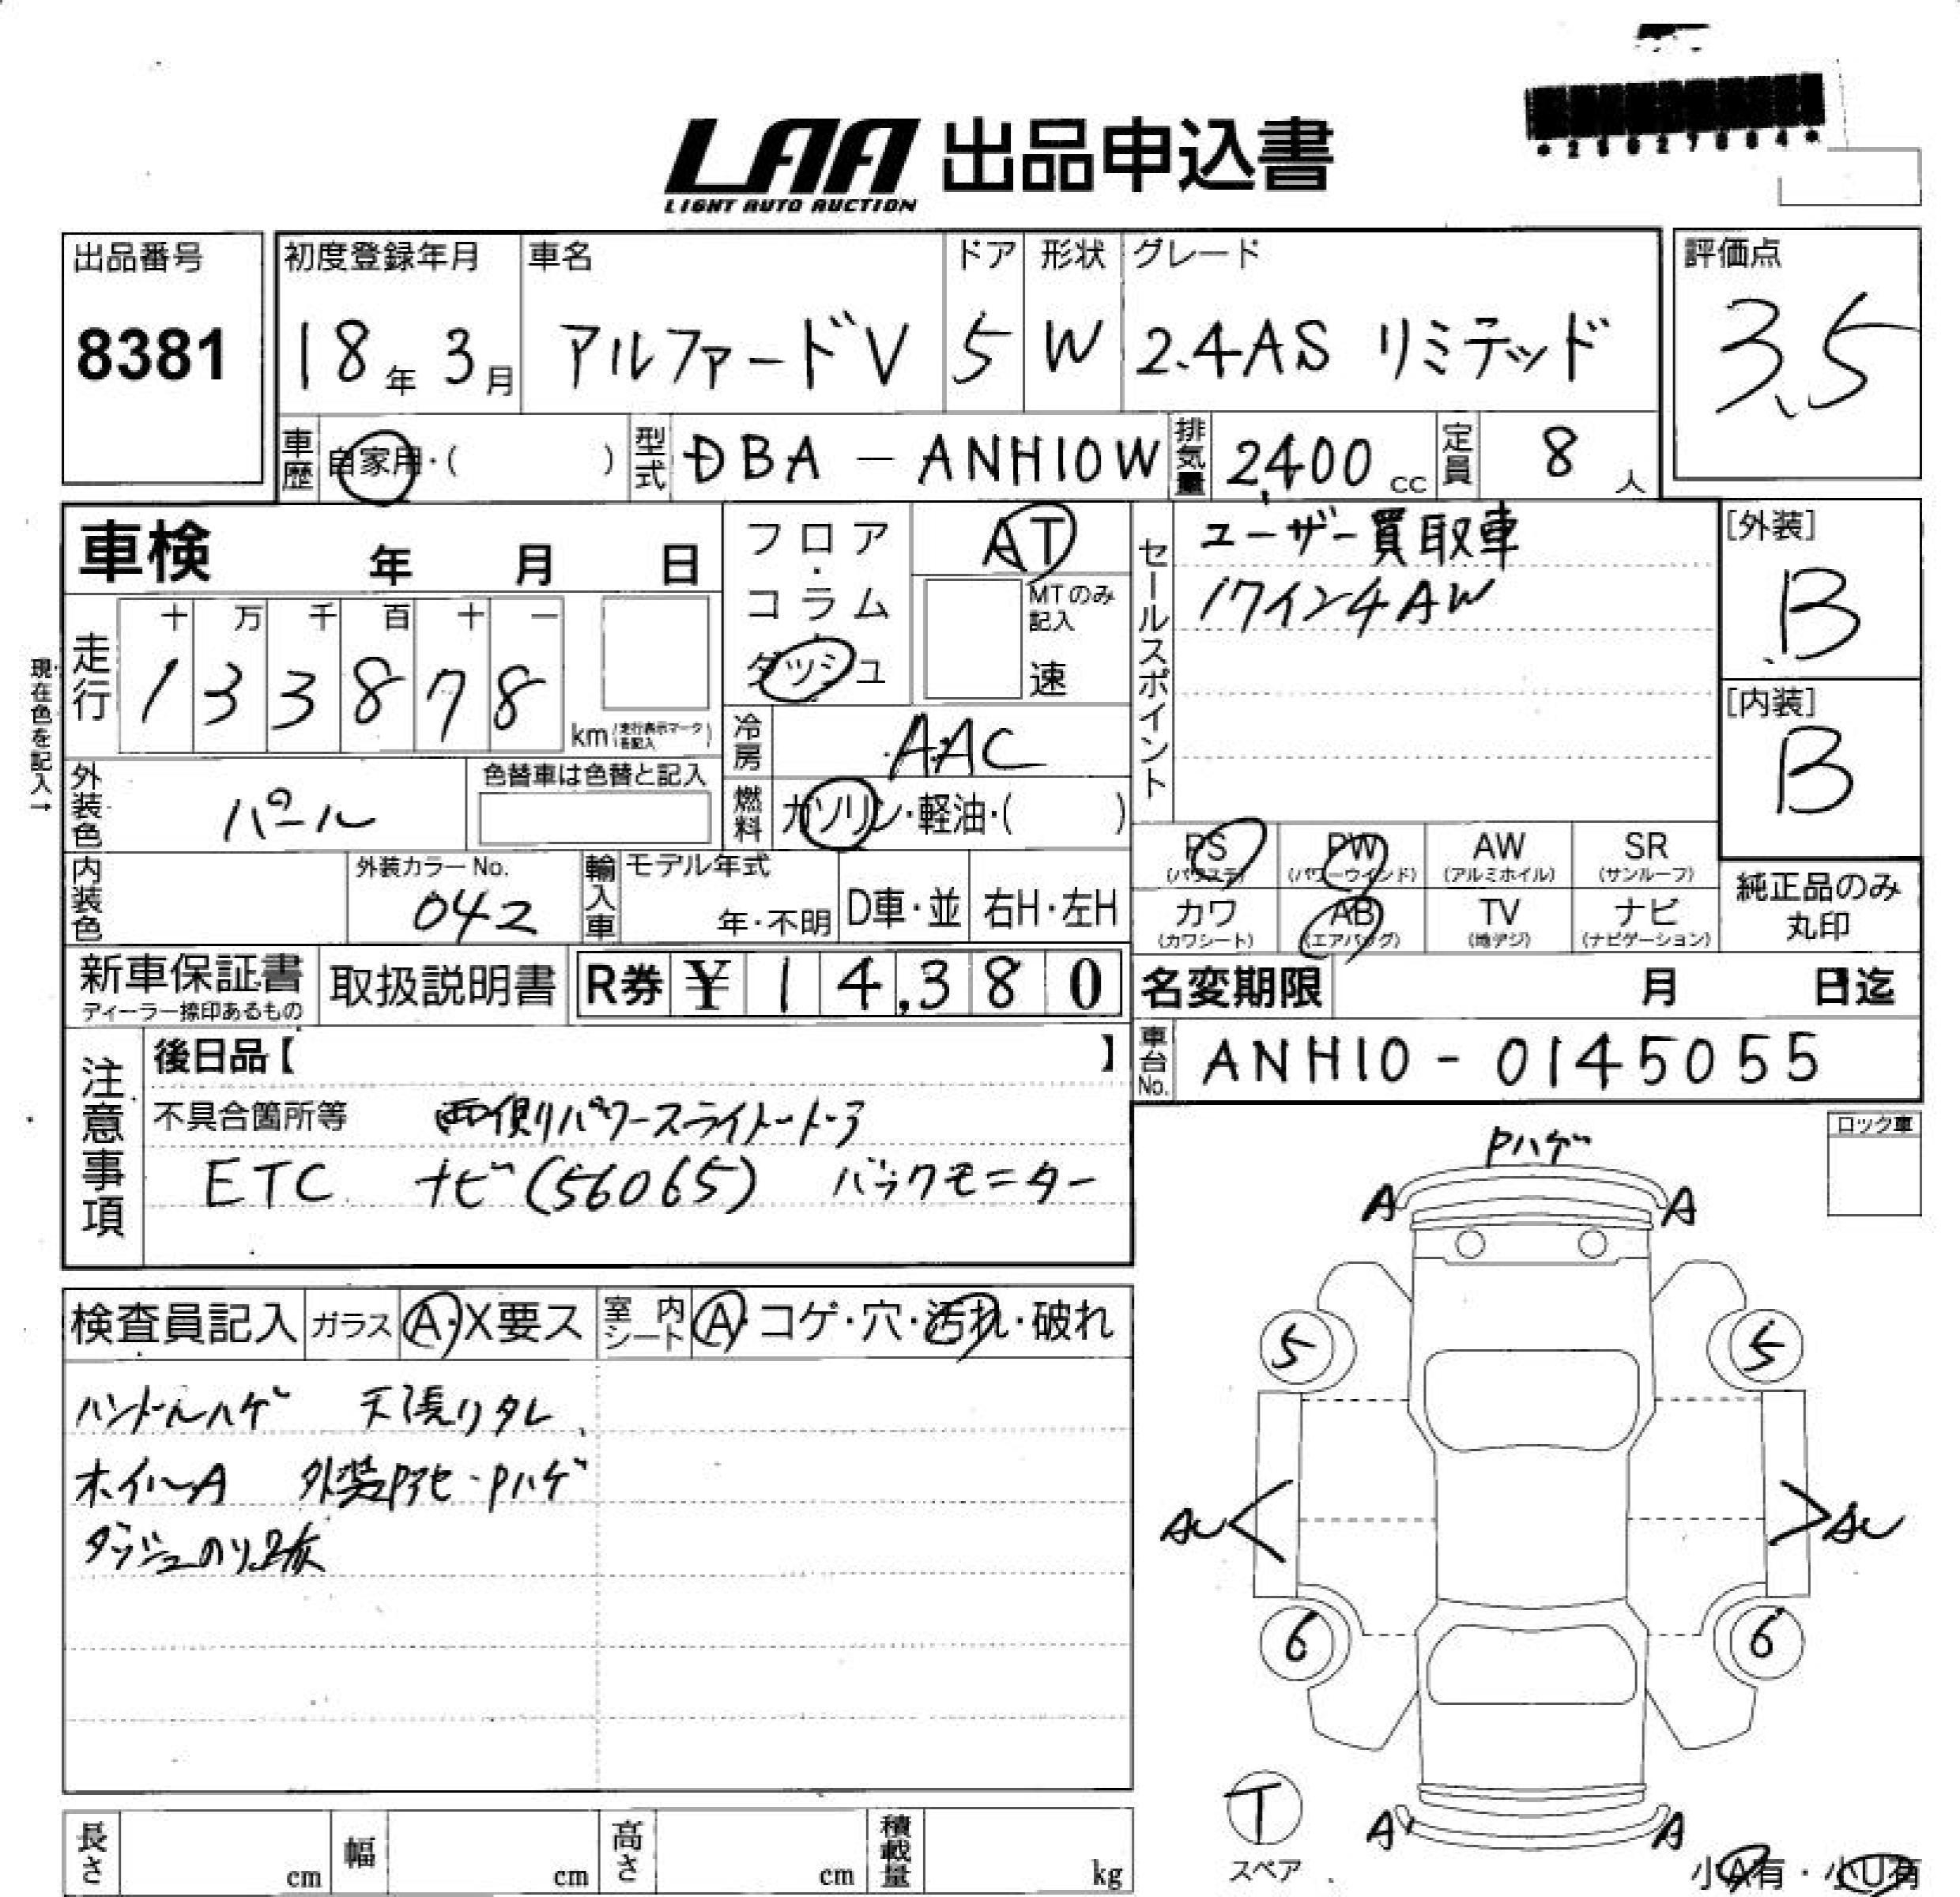 LAA 出品申込書
LIGHT AUTO AUCTION
出品番号
8381
初度登録年月
18年 3月
車名
アルファードV
ドア
5
形状
W
グレード
2.4AS リミテッド
評価点
3.5
車歴
自家用・( )
型式
DBA - ANH10W
排気量
2,400 cc
定員
8 人
車検 年 月 日
フロア・コラム・ダッシュ
AT
MTのみ記入
速
セールスポイント
ユーザー買取車
17インチAW
[外装]
B
[内装]
B
現在色を記入→
走行
十 万 千 百 十 一
1 3 3 8 7 8
km (走行表示マークを記入)
冷房
AAC
外装色
パール
色替車は色替と記入
燃料
ガソリン・軽油・( )
内装色
外装カラーNo.
042
輸入車
モデル年式
年・不明
D車・並
右H・左H
PS (パワステ)
PW (パワーウインド)
AW (アルミホイル)
SR (サンルーフ)
カワ (カワシート)
AB (エアバッグ)
TV (地デジ)
ナビ (ナビゲーション)
純正品のみ
丸印
新車保証書
ディーラー捺印あるもの
取扱説明書
R券 ¥ 14,380
名変期限 月 日迄
車台No.
ANH10-0145055
注意事項
後日品【 】
不具合箇所等 両側パワースライドドア
ETC ナビ(56065) バックモニター
ロック車
Pハゲ
A A
検査員記入
ガラス
A・X要ス
室内シート
A・コゲ・穴・汚れ・破れ
ハンドルハゲ 天張りタレ
ホイルA 外装Pアセ・Pハゲ
ダッシュのり跡
5 5
AU AU
6 6
T
スペア
A A
小A有・小U有
長さ cm
幅 cm
高さ cm
積載量 kg